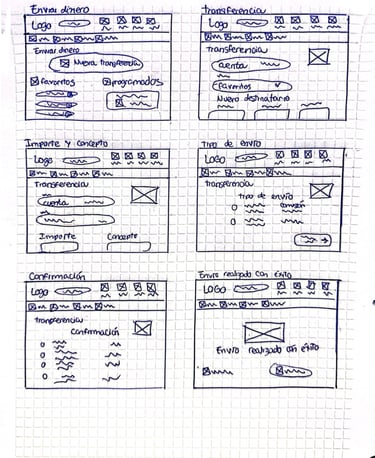 Enviar dinero
Logo
Enviar dinero
Nueva transferencia
Favoritos
programados
Transferencia
Logo
Transferencia
Cuenta
Favoritos
Nuevo destinatario
Importe y concepto
Logo
Transferencia
Cuenta
Importe
Concepto
Tipo de envío
Logo
Transferencia
Tipo de envío
Comisión
Confirmación
Logo
Transferencia
Confirmación
Envío realizado con éxito
Logo
Envío realizado con éxito